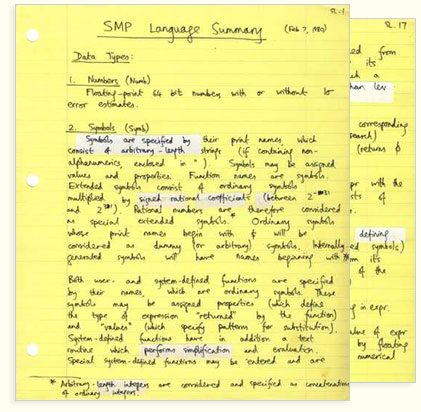 R.1
SMP Language Summary (Feb 7, 1980)
Data Types:
1. Numbers (Numb)
Floating-point 64 bit number, with or without 10
error estimates.
2. Symbols (Symb)
Symbols are specified by their print names which
consist of arbitrary-length strips (if containing non-
alphanumerics, enclosed in " ). Symbols may be assigned
values and properties. Function names are symbols.
Extended symbols consist of ordinary symbols
multiplied by signed rational coefficients (between 2
and 2 ). Rational numbers are therefore considered
as special extended symbols.* Ordinary symbols
whose print names begin with $ will be
considered as dummy (or arbitrary) symbols. Internally-
generated symbols will have names beginning with #
Both user- and system-defined functions are specified
by their names, which are ordinary symbols. These
symbols may be assigned properties (which define
the type of expression "returned" by the function)
and "values" (which specify patterns for substitution).
System-defined functions have in addition a text
routine which performs simplification and evaluation.
Special system-defined functions may be entered and are
* Arbitrary-length integers are considered and specified as concatenations
of ordinary integers.
R.17
ed from
its
ch a
han lev
corresponding
search)
(returns
pr with the
sts of
defining
ed symbols)
its
of the
ing in expr.
value of expr
by floating
numerical